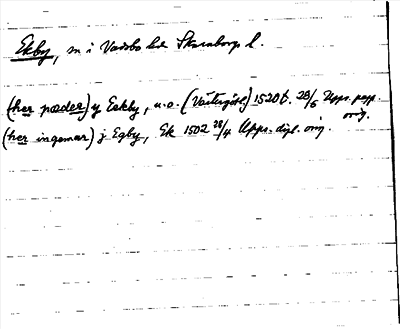 Ekby, sn i Vadsbo hd Skaraborgs l.
(her pæder) y Eekby, u.o. (Västergötl.) 1520t. 28/5 Upps. papp. orig.
(her ingemar) j Egby, Ek 1502 28/4 Upps. dipl. orig.